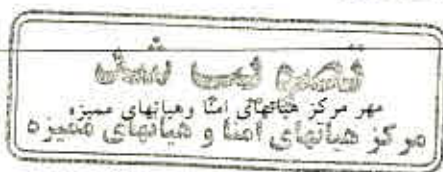 مهر مرکز هیاتهای امنا وهیاتهای ممیزه
مرکز هیاتهای امنا و هیاتهای ممیزه